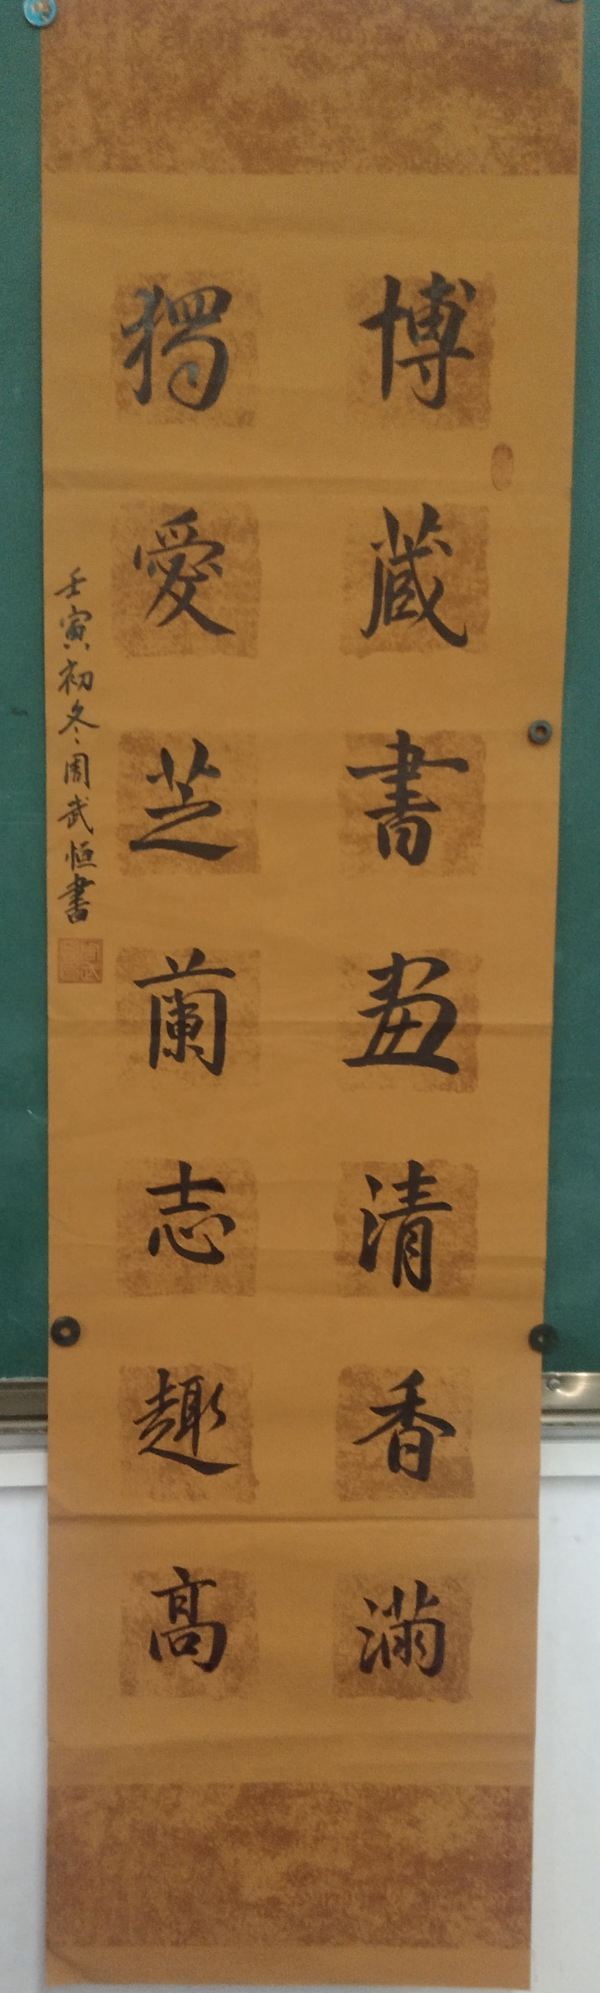 博蔵書畫清香滿
獨愛芝蘭志趣高
壬寅初冬周武恒書